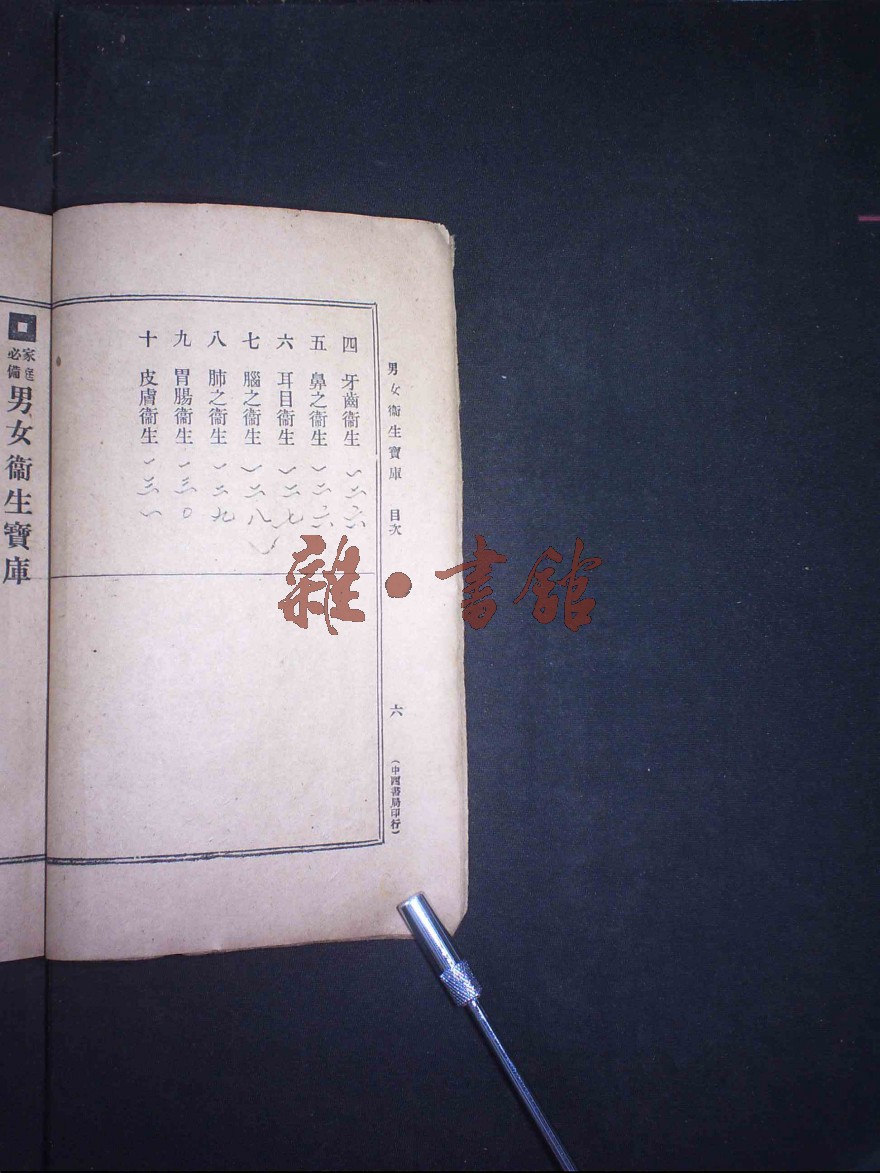 男女衞生寶庫 目次 六 （中西書局印行）
四 牙齒衞生 一二六
五 鼻之衞生 一二六
六 耳目衞生 一二七
七 腦之衞生 一二八
八 肺之衞生 一二九
九 胃腸衞生 一三〇
十 皮膚衞生 一三一
家庭必備 男女衞生寶庫
雜·書館